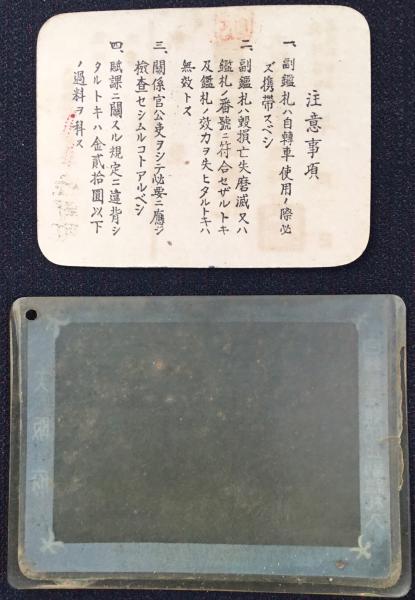 注意事項
一、副鑑札ハ自轉車使用ノ際必
ズ携帶スベシ
二、副鑑札ハ毀損亡失磨滅又ハ
鑑札ノ番號ニ符合セザルトキ
及鑑札ノ效力ヲ失ヒタルトキハ
無效トス
三、關係官公吏ヲシテ必要ニ應ジ
檢査セシムルコトアルベシ
四、賦課ニ關スル規定ニ違背シ
タルトキハ金貳拾圓以下
ノ過料ヲ科ス
大阪府